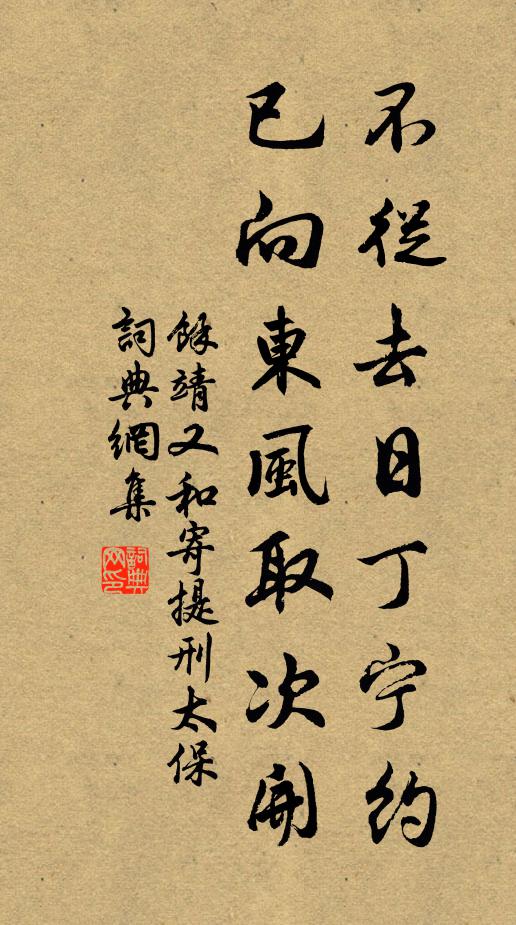 不從去日丁宁約
已向東風取次開
餘靖又和寄提刑太保
詞典網集
詞典网印